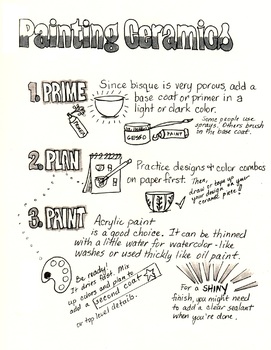 Painting Ceramics
1. PRIME
Since bisque is very porous, add a
base coat or primer in a
light or dark color.
Some people use
sprays. Others brush
on the base coat.
GESSO
PAINT
2. PLAN
Practice designs + color combos
on paper first.
Then,
draw or tape on your
your design on
ceramic piece!
3. PAINT
Acrylic paint
is a good choice. It can be thinned
with a little water for watercolor-like
washes or used thickly like oil paint.
Be ready!
It dries fast. Mix
up colors and plan to
add a second coat
or top level details.
For a SHINY
finish, you might need
to add a clear sealant
when you're done.